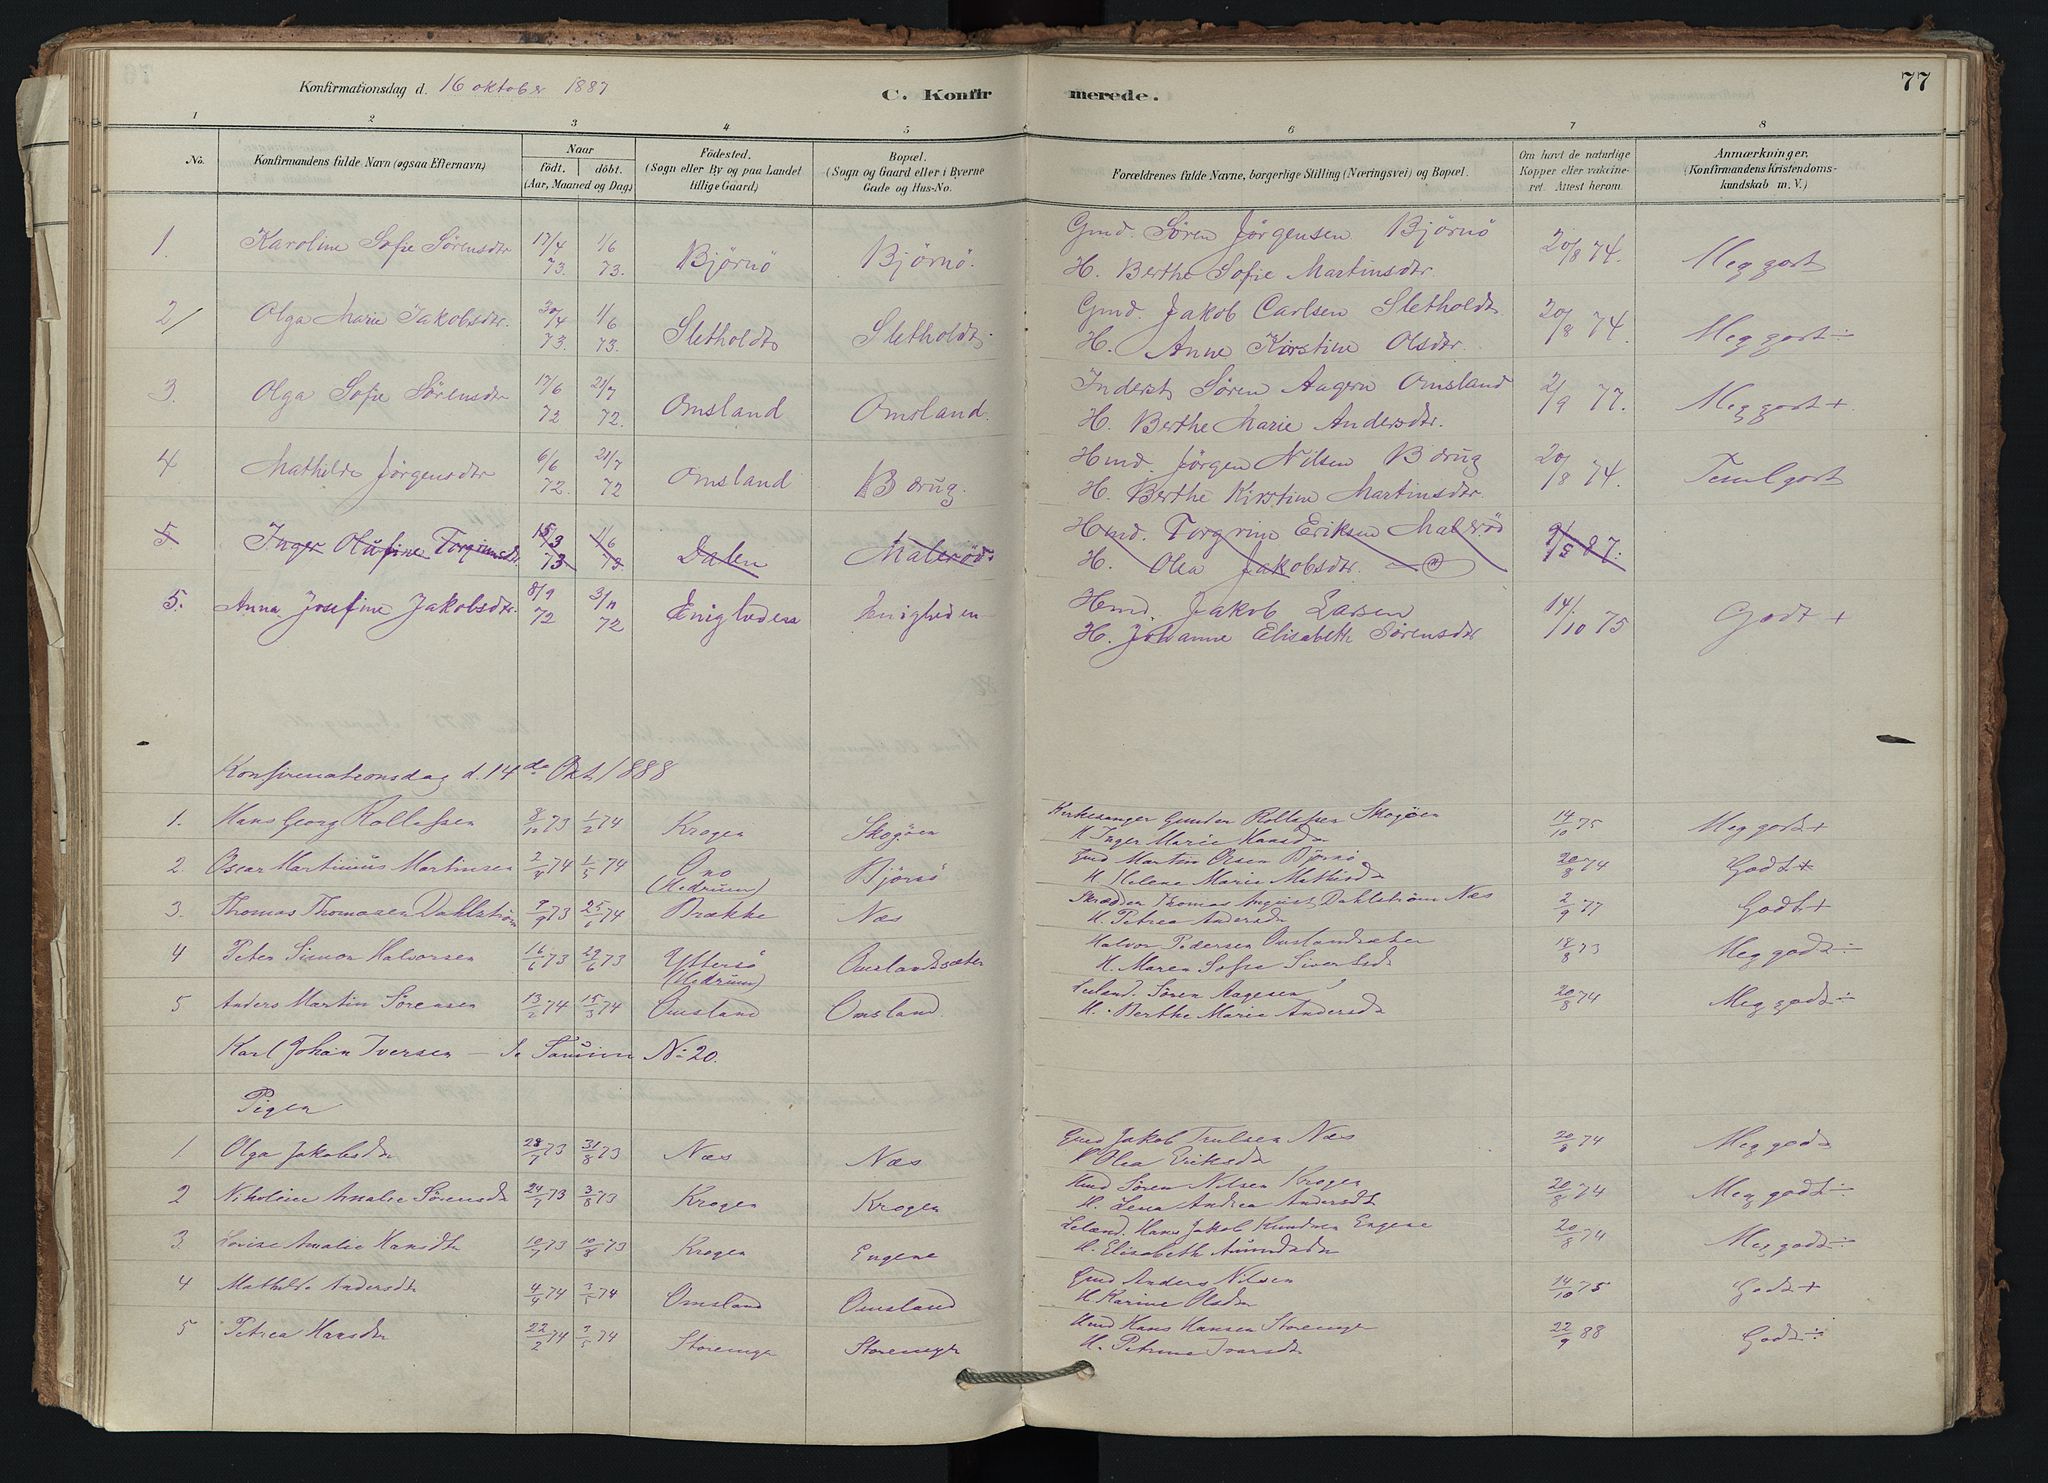 77
Konfirmationsdag d. 16 oktober 1887
C. Konfirmerede.
1 2 3 4 5 6 7 8
No. Konfirmandens fulde Navn (ogsaa Efternavn) Naar födt. döbt. (Aar, Maaned og Dag) Födested. (Sogn eller By og paa Landet tillige Gaard) Bopæl. (Sogn og Gaard eller i Byerne Gade og Hus-No. Forældrenes fulde Navne, borgerlige Stilling (Næringsvei) og Bopæl. Om havt de naturlige Kopper eller vakcineret. Attest herom. Anmærkninger. (Konfirmandens Kristendomskundskab m. V.)
1. Karoline Sofie Sörensdtr 17/4 73. 1/6 73. Björnö Björnö. Gmd. Sören Jörgensen Björnö
H. Berthe Sofie Martinsdtr. 20/8 74. Meg godt
2/ Olga Marie Jakobsdtr. 30/4 73. 1/6 73. Sletholdt Sletholdt. Gmd. Jakob Carlsen Sletholdt
H. Anne Kirstine Olsdtr. 20/8 74. Meg godt ÷
3. Olga Sofie Sörensdtr 17/6 72 21/7 72. Omsland Omsland. Inderst Sören Aagesn Omsland
H. Berthe Marie Andersdtr. 2/9 77. Meg godt +
4 Mathilde Jörgensdtr 6/6 72. 21/7 72 Omsland Bærug. Hmd. Jörgen Nilsen Bærug
H. Berthe Kirstine Martinsdtr. 20/8 74. Teml godt
5 Inger Olufine Torgrimsdtr. 15/3 73 1/6 73. Dalen Maleröd Hmd. Torgrim Eriksen Maleröd
H. Olea Jakobsdtr. 9/5 87.
5. Anna Josefine Jakobsdtr. 8/9 72 3/11 72 Enigheden Enigheden Hmd. Jakob Larsen
H. Johanne Elisabeth Sörensdtr 14/10 75 Godt +
Konfirmationsdag d. 14de Okt 1888
1. Hans Georg Rollefsen 8/12 73 1/2 74 Krogen Skogöen Kirkesanger Gunder Rollefsen Skogöen
H. Inger Marie Hansdtr 14/10 75 Meg godt +
2. Oscar Martinius Martinsen 2/4 74 1/5 74 Ono (Hedrum) Björnö Gmd Martin Olsen Björnö
H. Helene Marie Mathisdtr 20/8 74 Godt +
3. Thomas Thomasen Dahlström 7/9 73 25/ 74 Brække Næs Skrædder Thomas August Dahlström Næs
H. Petrea Andersdtr 2/9 77 Godt +
4 Peter Simon Halvorsen 16/6 73 29/6 73 Yttersö (Hedrum) Omslandsæter Halvor Pedersen Omslandsæter
H. Maren Sofie Sivertsdtr 18/8 73 Meg godt ÷
5 Anders Martin Sörensen 13/2 74 15/3 74 Omsland Omsland. Leiland. Sören Aagesen
H. Berthe Marie Andersdtr 20/8 74 Meg godt ÷
Karl Johan Iversen — No 20.
Piger
1 Olga Jakobsdtr 28/7 73 31/8 73 Næs Næs Gmd Jakob Trulsen Næs
H Olea Eriksdtr 20/8 74 Meg godt
2 Nikoline Amalie Sörensdtr 24/7 73 3/8 73 Krogen Krogen Hmd Sören Nilsen Krogen
H. Lena Andrea Andersdtr 20/8 74 Meg godt ÷
3. Lovise Amalie Hansdtr 10/7 73 10/8 73 Krogen Engene Leiland. Hans Jakob Knudsen Engene
H. Elisabeth Amundsdtr 20/8 74 Meg godt ÷
4 Mathilde Andersdtr 4/4 74 3/5 74 Omsland Omsland Gmd Anders Nilsen
H Karine Olsdtr 14/10 75 Godt +
5 Petrea Hansdtr 22/2 74 3/5 74 Storenge Storenge Hmd Hans Hansen Storenge
H. Petrine Ivarsdtr 22/9 88 Godt ÷